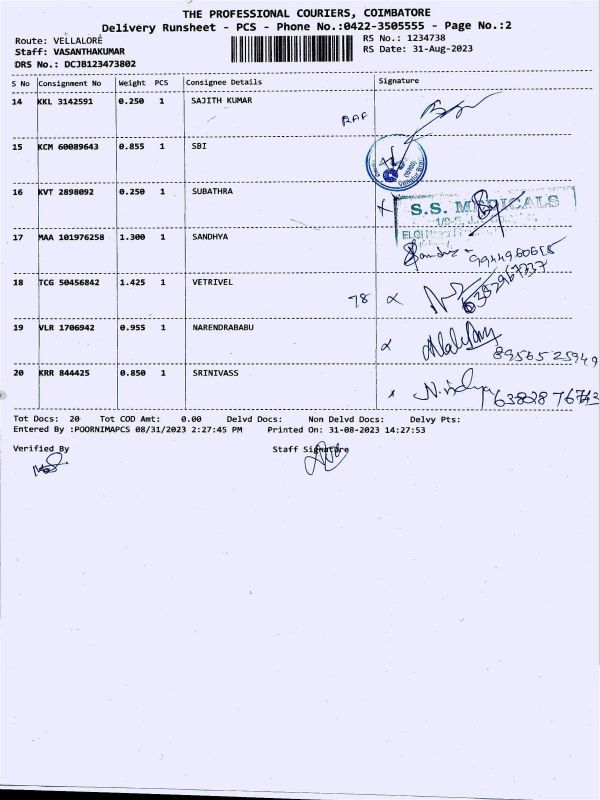 THE PROFESSIONAL COURIERS, COIMBATORE
Delivery Runsheet - PCS - Phone No.:0422-3505555 - Page No.:2
Route: VELLALORE
RS No.: 1234738
Staff: VASANTHAKUMAR
RS Date: 31-Aug-2023
DRS No.: DCJB123473802
S No Consignment No Weight PCS Consignee Details Signature
14 KKL 3142591 0.250 1 SAJITH KUMAR
15 KCM 60089643 0.855 1 SBI
16 KVT 2898092 0.250 1 SUBATHRA
S.S. MEDICALS
17 MAA 101976258 1.300 1 SANDHYA
18 TCG 50456842 1.425 1 VETRIVEL
78
19 VLR 1706942 0.955 1 NARENDRABABU
8956525949
20 KRR 844425 0.850 1 SRINIVASS
Tot Docs: 20 Tot COD Amt: 0.00 Delvd Docs: Non Delvd Docs: Delvy Pts:
Entered By :POORNIMAPCS 08/31/2023 2:27:45 PM Printed On: 31-08-2023 14:27:53
Verified By Staff Signature